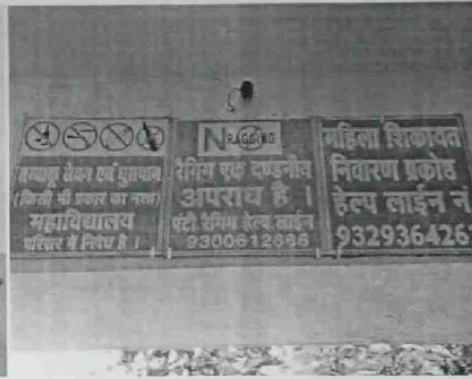 तम्बाकू सेवन एवं धुम्रपान
(किसी भी प्रकार का नशा)
महाविद्यालय
परिसर में निषेध है ।
NO RAGGING
रैगिंग एक दण्डनीय
अपराध है ।
एंटी रैगिंग हेल्प लाईन
9300612886
महिला शिकायत
निवारण प्रकोष्ठ
हेल्प लाईन न
932936426